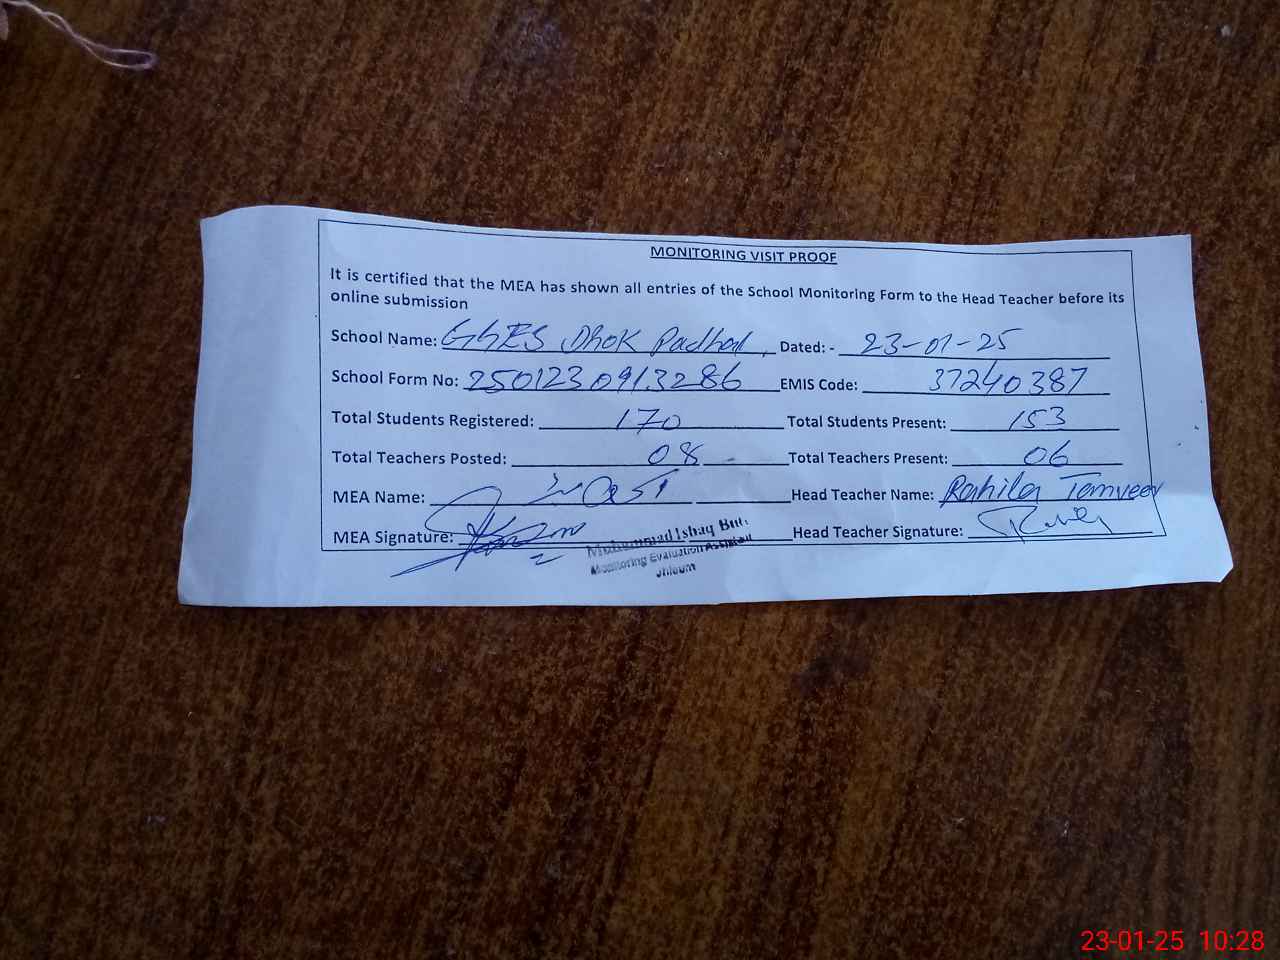 MONITORING VISIT PROOF
It is certified that the MEA has shown all entries of the School Monitoring Form to the Head Teacher before its
online submission
School Name: GGES Dhok Padhal Dated: - 23-01-25
School Form No: 2501230913286 EMIS Code: 37240387
Total Students Registered: 170 Total Students Present: 153
Total Teachers Posted: 08 Total Teachers Present: 06
MEA Name: Head Teacher Name: Rahila Tanveer
MEA Signature: Head Teacher Signature:
Muhammad Ishaq Butt
Monitoring Evaluation Assistant
Jhleum
23-01-25 10:28